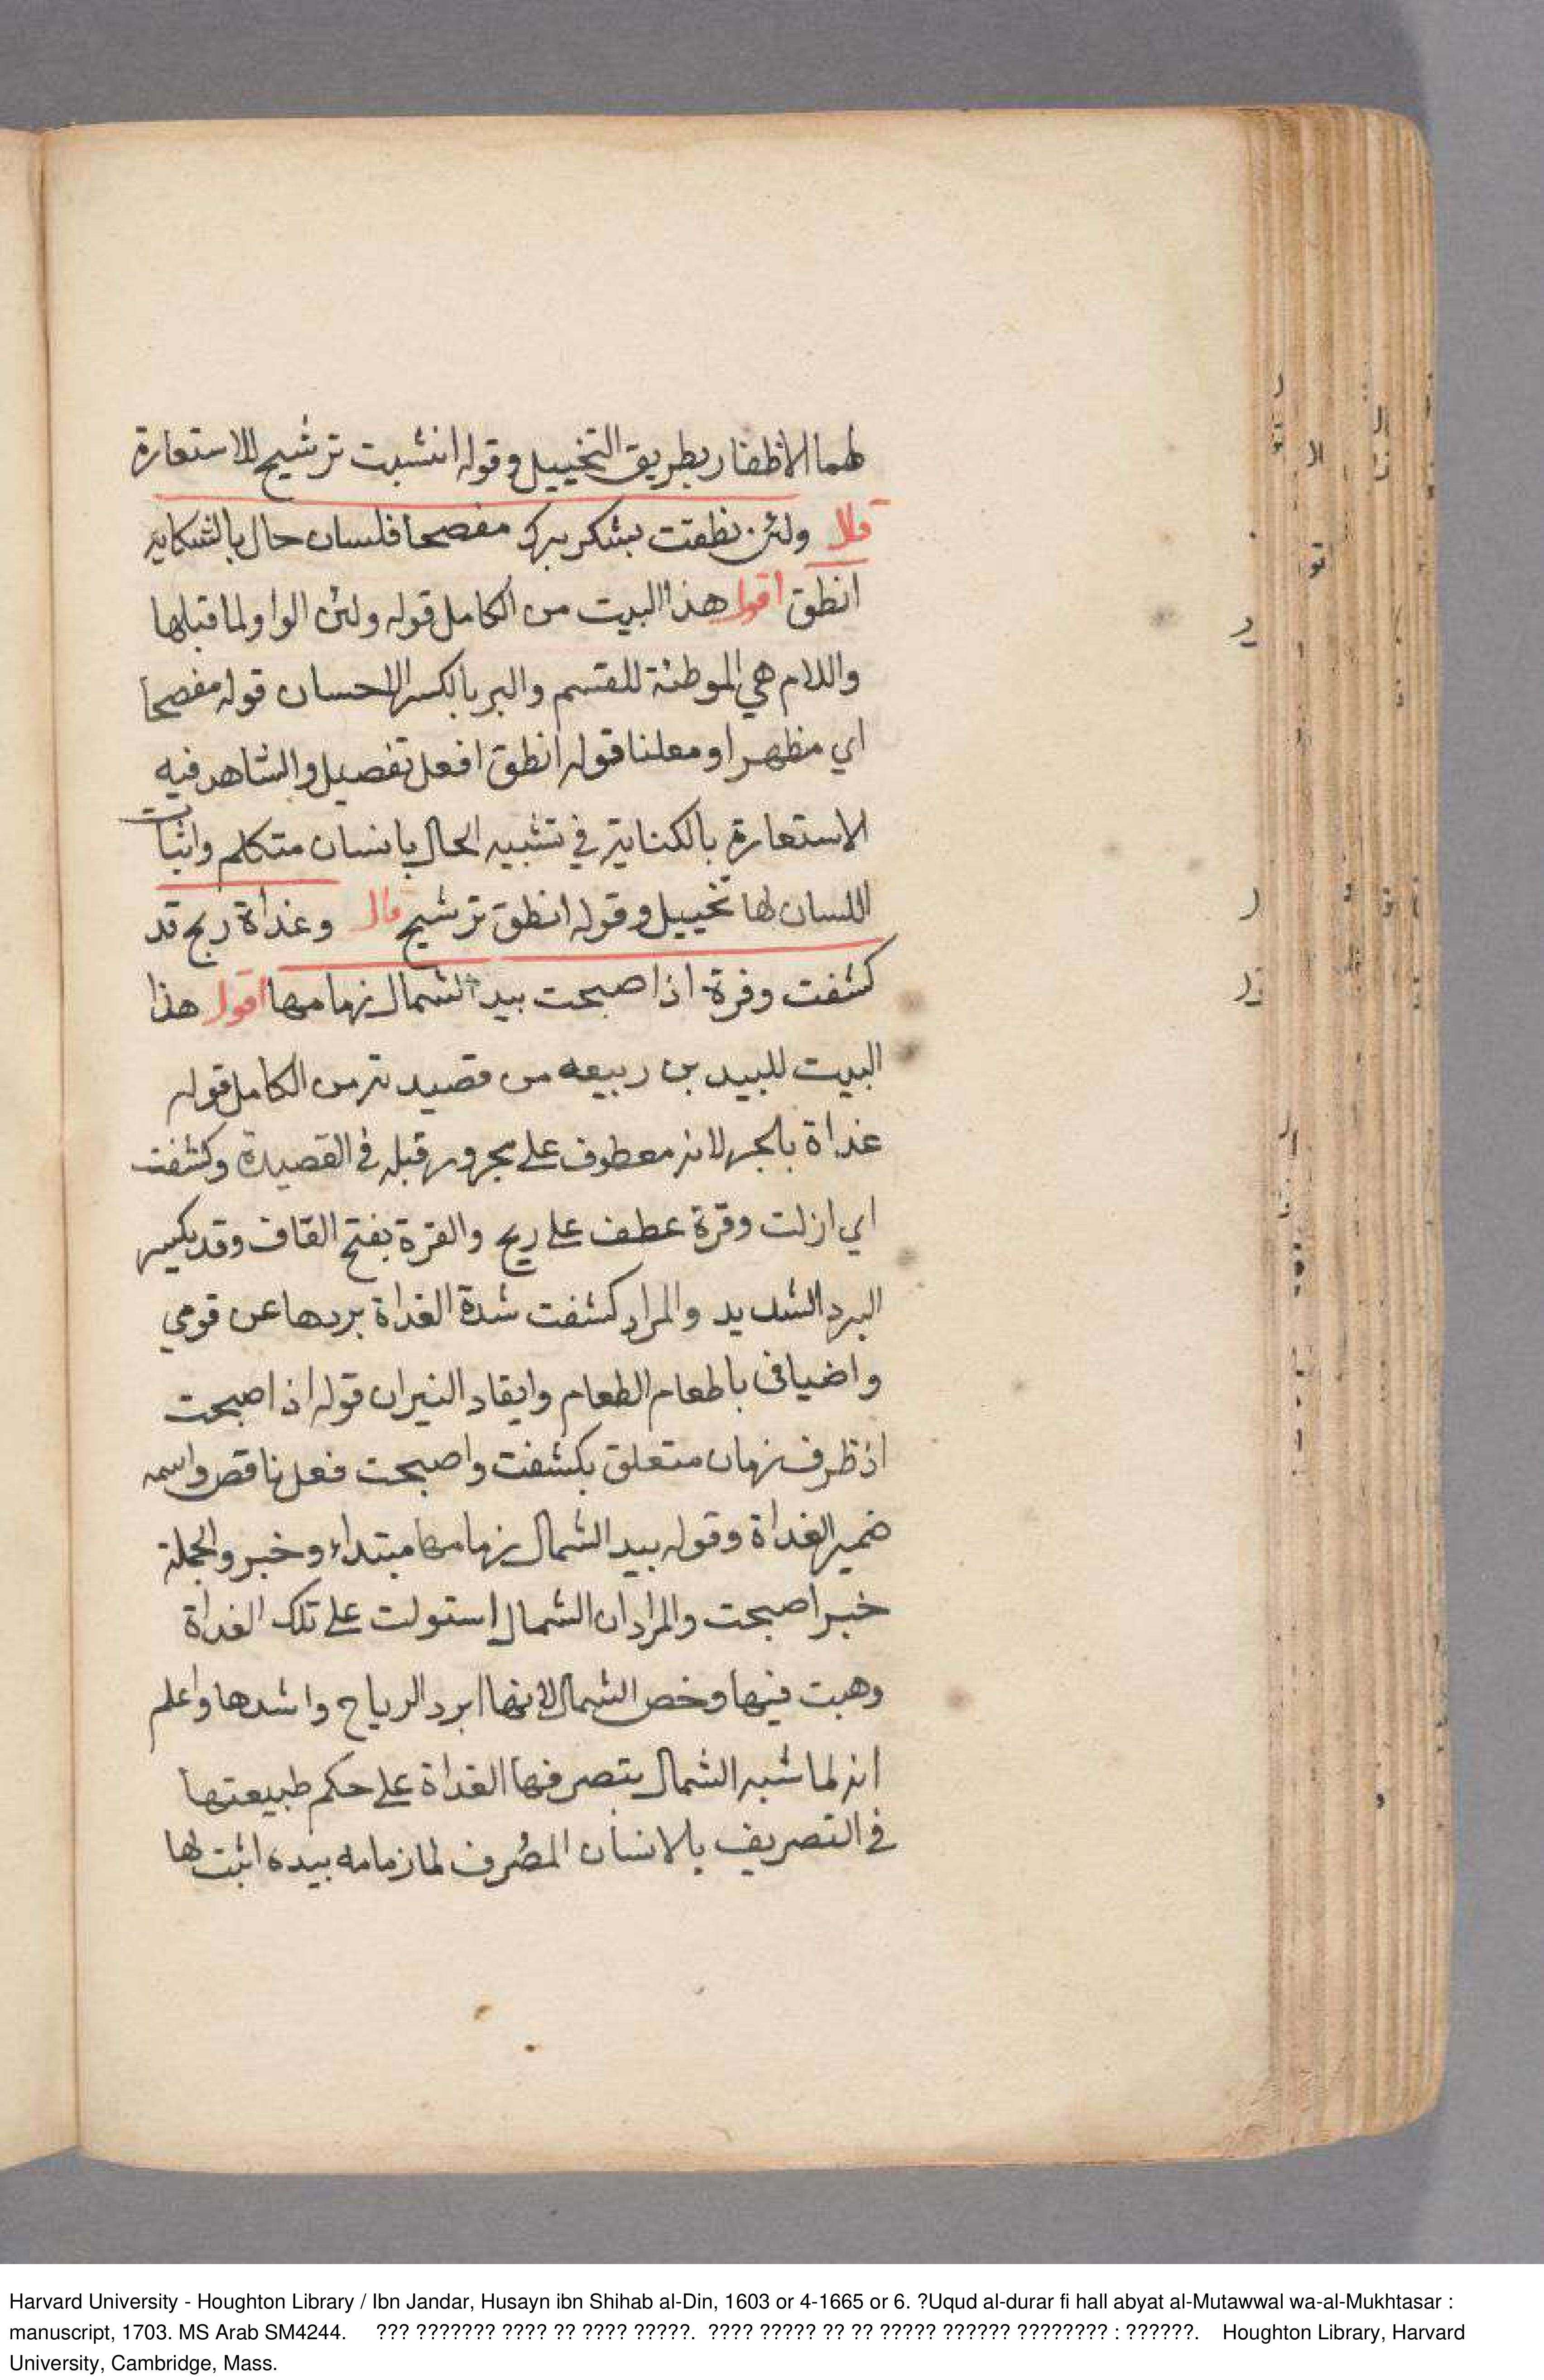 لهما الاظفار بطريق التخييل وقوله انشبت ترشيح للاستعارة
قال ولئن نطقت بشكر برك مفصحا فلسان حال بالشكاية
انطق اقول هذا البيت من الكامل قوله ولئن الواو لما قبلها
واللام هي الموطئة للقسم والبر بالكسر الاحسان قوله مفصحا
اي مظهرا ومعلنا قوله انطق افعل تفصيل والشاهد فيه
الاستعارة بالكناية في تشبيه الحال بانسان متكلم واثبات
اللسان لها تخييل وقوله انطق ترشيح قال وغداة ريح قد
كشفت وقرة اذا صبحت بيد الشمال زمامها اقول هذا
البيت للبيد بن ربيعه من قصيدته من الكامل قوله
غداة بالجر لانه معطوف على مجرور قبله في القصيدة وكشفت
اي ازلت وقرة عطف على ريح والقرة بفتح القاف وقد يكسر
البرد الشديد والمراد كشفت شدة الغداة بردها عن قومي
واضيافي باطعام الطعام وايقاد النيران قوله اذ اصبحت
اذ ظرف زمان متعلق بكشفت واصبحت فعل ناقص واسمه
ضمير الغداة وقوله بيد الشمال زمامها مبتداء وخبر والجملة
خبر اصبحت والمراد ان الشمال استولت على تلك الغداة
وهبت فيها وخص الشمال لانها ابرد الرياح واشدها واعلم
انه لما شبه الشمال بتصرفها الغداة على حكم طبيعتها
في التصريف بالانسان المصرف لما زمامه بيده اثبت لها
Harvard University - Houghton Library / Ibn Jandar, Husayn ibn Shihab al-Din, 1603 or 4-1665 or 6. ?Uqud al-durar fi hall abyat al-Mutawwal wa-al-Mukhtasar :
manuscript, 1703. MS Arab SM4244. ??? ??????? ???? ?? ???? ?????. ???? ????? ?? ?? ????? ?????? ???????? : ??????. Houghton Library, Harvard
University, Cambridge, Mass.